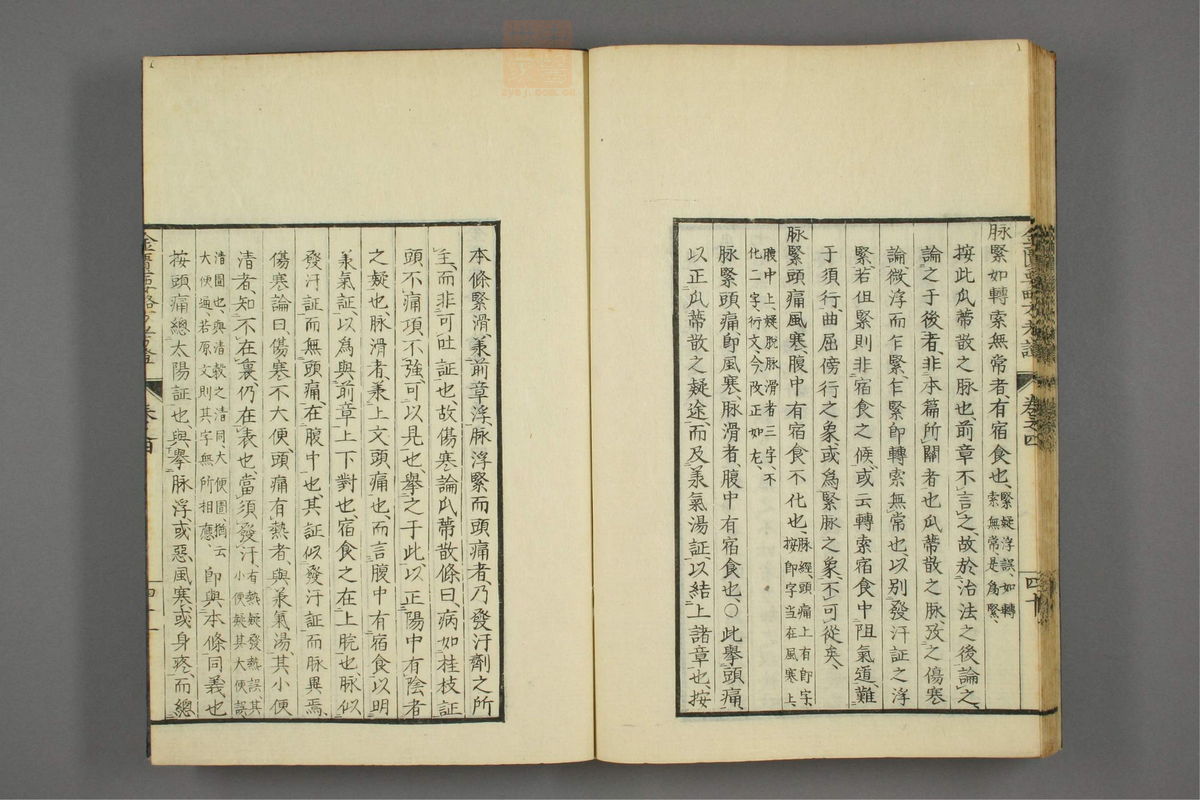 脉緊如轉索無常者、有宿食也、緊疑浮誤、如轉索無常是為緊、
按此瓜蒂散之脉也、前章不言之、故於治法之後論之、
論之于後者、非本篇所關者也、瓜蒂散之脉、攷之傷寒
論、微浮而乍緊乍緊即轉索無常也、以別發汗証之浮
緊、若但緊則非宿食之候、或云轉索宿食中阻氣道、難
于須行、曲屈傍行之象、或為緊脉之象、不可從矣、
脉緊頭痛風寒、腹中有宿食不化也、脉經、頭痛上有即字、按即字当在風寒上、
腹中上、疑脫脉滑者三字、不化二字、衍文今改正如左、
脉緊頭痛、即風寒、脉滑者、腹中有宿食也、○此舉頭痛、
以正瓜蒂散之疑途、而及承氣湯証、以結上諸章也、按
本條緊滑、兼前章浮、脉浮緊而頭痛者、乃發汗劑之所
主、而非可吐証也、故傷寒論瓜蒂散條曰、病如桂枝証
頭不痛項不強、可以見也、舉之于此、以正陽中有陰者
之疑也、脉滑者、兼上文頭痛也、而言腹中有宿食、以明
承氣証、以為與前章上下對也、宿食之在上脘也、脉似
發汗証而無頭痛、在腹中也、其証似發汗証而脉異焉、
傷寒論曰、傷寒不大便、頭痛有熱者、與承氣湯其小便
清者、知不在裏、仍在表也、當須發汗、有熱疑發熱誤、其小便疑其大便誤
清圊也、與清穀之清同、大便圊、猶云大便通、若原文則其字無所相應、即與本條同義也
按頭痛總太陽証也、與舉脉浮、或惡風寒、或身疼、而總
金匱要略方考證
卷之四
四十